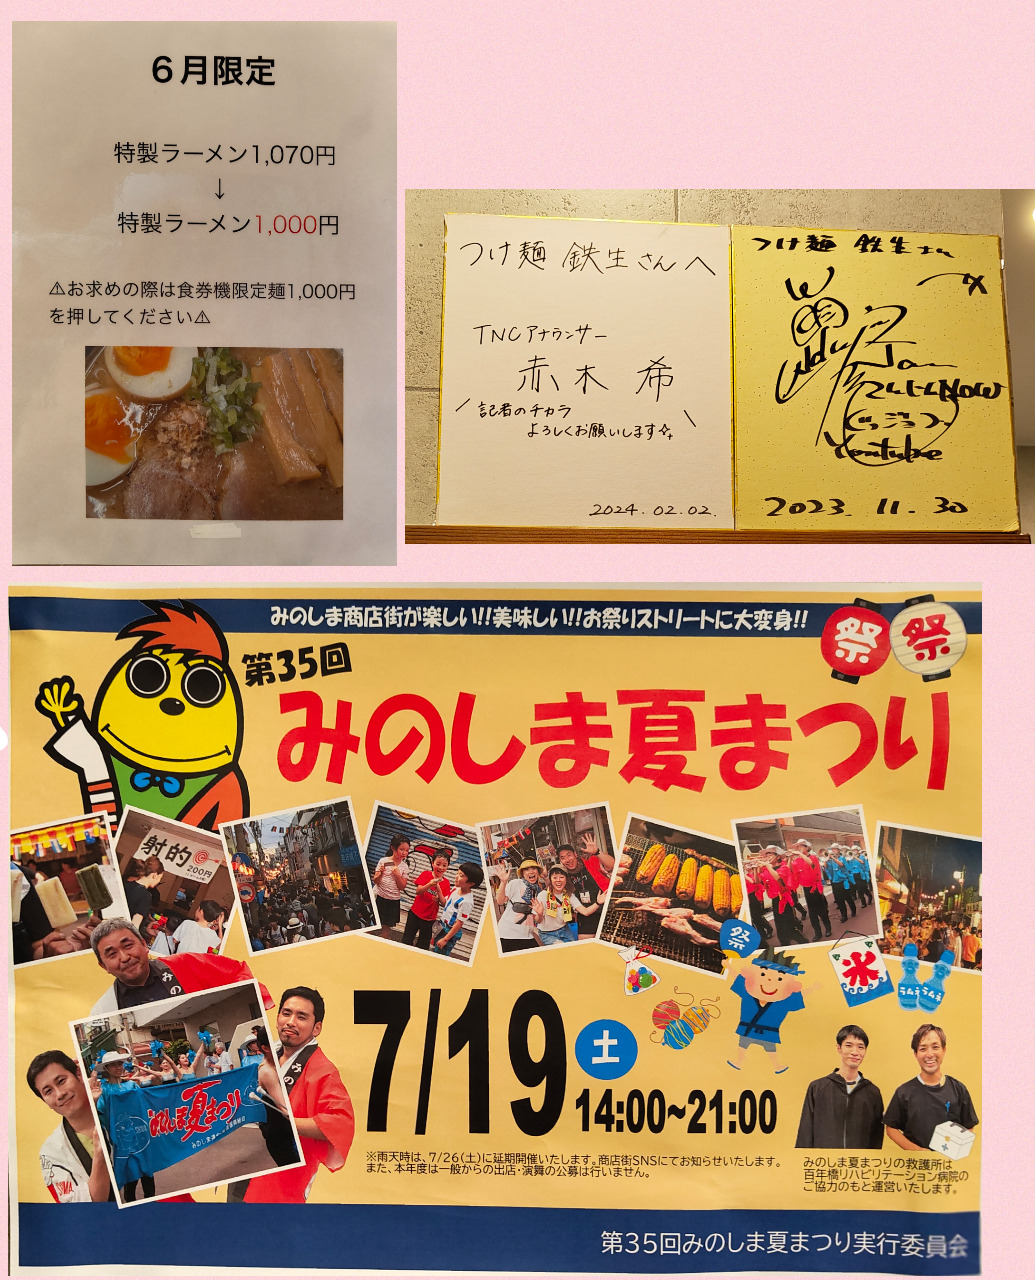 6月限定
特製ラーメン1,070円
↓
特製ラーメン1,000円
⚠お求めの際は食券機限定麺1,000円
を押してください⚠
つけ麺 鉄生さんへ
TNCアナウンサー
赤木 希
記者のチカラ
よろしくお願いします
2024.02.02.
つけ麺 鉄生さん
Youtube
2023.11.30
みのしま商店街が楽しい!!美味しい!!お祭りストリートに大変身!!
祭 祭
第35回
みのしま夏まつり
射的
200円
祭
氷
ラムネ ラムネ
みのしま夏まつり
7/19 土
14:00~21:00
※雨天時は、7/26(土)に延期開催いたします。商店街SNSにてお知らせいたします。
また、本年度は一般からの出店・演舞の公募は行いません。
みのしま夏まつりの救護所は
百年橋リハビリテーション病院の
ご協力のもと運営いたします。
第35回みのしま夏まつり実行委員会